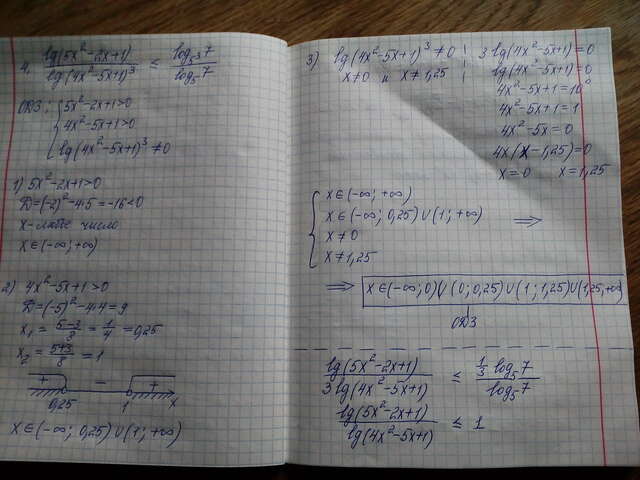 4. lg(5x²-2x+1) / lg(4x²-5x+1)³ ≤ log₅³7 / log₅7
ОДЗ: { 5x²-2x+1>0
4x²-5x+1>0
lg(4x²-5x+1)³ ≠0
1) 5x²-2x+1>0
D=(-2)²-4·5=-16<0
x-любое число
x∈(-∞; +∞)
2) 4x²-5x+1>0
D=(-5)²-4·4=9
x₁ = 5-3/8 = 1/4 = 0,25
x₂ = 5+3/8 = 1
+ − +
0,25 1 x
x∈(-∞; 0,25)∪(1; +∞)
3) lg(4x²-5x+1)³≠0
x≠0 и x≠1,25
3 lg(4x²-5x+1)=0
lg(4x²-5x+1)=0
4x²-5x+1=10⁰
4x²-5x+1=1
4x²-5x=0
4x(x-1,25)=0
x=0 x=1,25
{ x∈(-∞; +∞)
x∈(-∞; 0,25)∪(1; +∞) ⟹
x≠0
x≠1,25
⟹ x∈(-∞; 0)∪(0; 0,25)∪(1; 1,25)∪(1,25; +∞)
ОДЗ
lg(5x²-2x+1) / 3 lg(4x²-5x+1) ≤ 1/3 log₅7 / log₅7
lg(5x²-2x+1) / lg(4x²-5x+1) ≤ 1